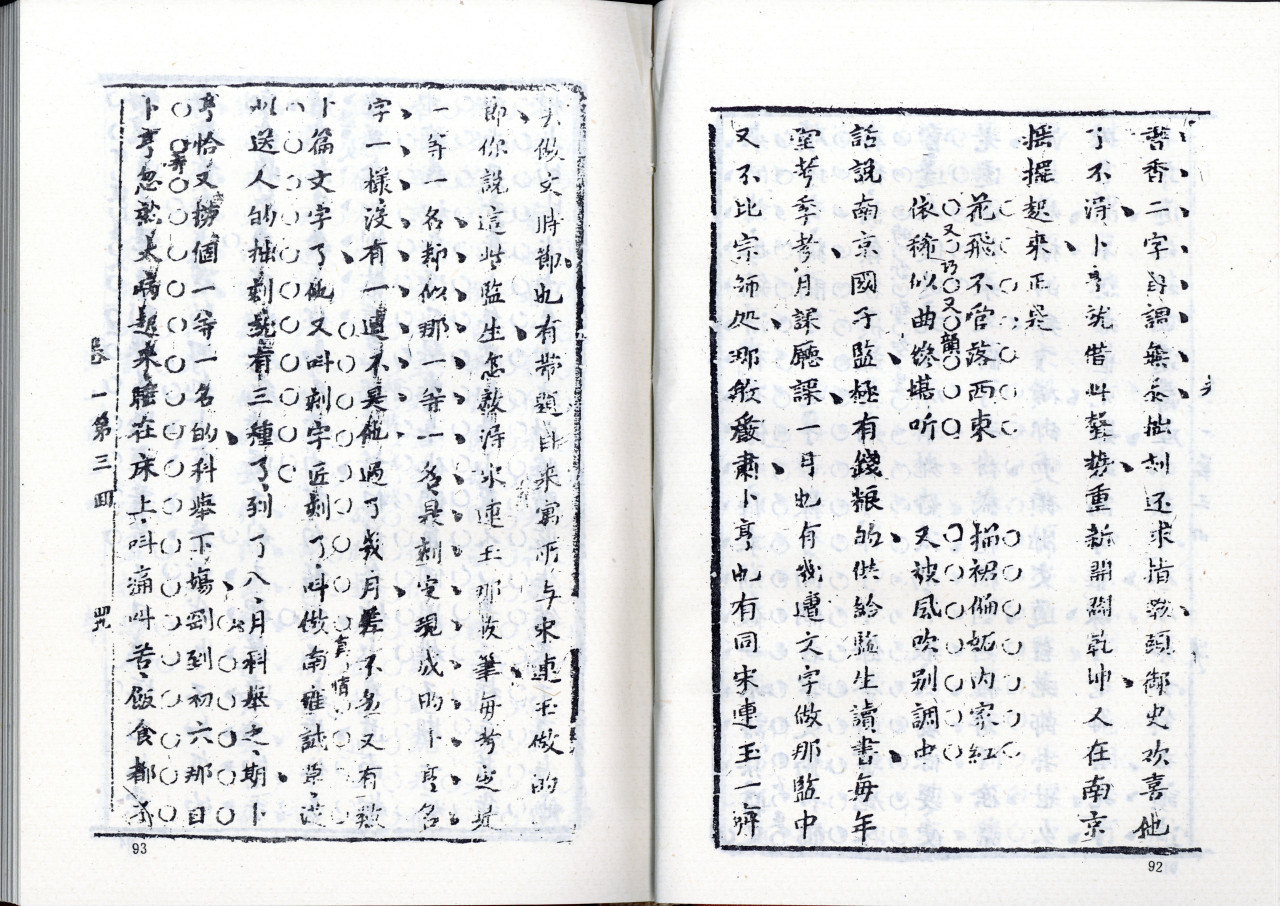 書香二字自謂無忝拙刻还求指教頭御史欢喜他
了不淂卜亨就借此聲勢重新開闢乾坤人在南京
摇擺起來正是
花飛不管落西東 猫裙偏
内家紅
依稀似曲纔堪听 又被風吹别調中
又巧又韻
話説南京國子監極有錢粮的供給監生讀書每年
堂考季考月課廳課一月也有幾遭文字做那監中
又不比宗師処那般嚴肃卜亨也有同宋連玉一
92
做文時節也有带題目来寓所与宋連玉做的
即你說這些監生怎敵淂宋連玉那枝筆每考
一等一名却似那一等一名是刻定現成的卜亨名
字一樣没有一遭不是他過了幾月差不多又有数
十篇文字了他又叫刻字匠刻了叫做南雍試草
送人的拙刻就有三種了到了八月科舉之期卜
真情
亨恰又
個一等一名的科舉下塲到初六那日
卜亨忽然大病起來睡在床上叫痛叫苦飯食都
卷一第三回
93